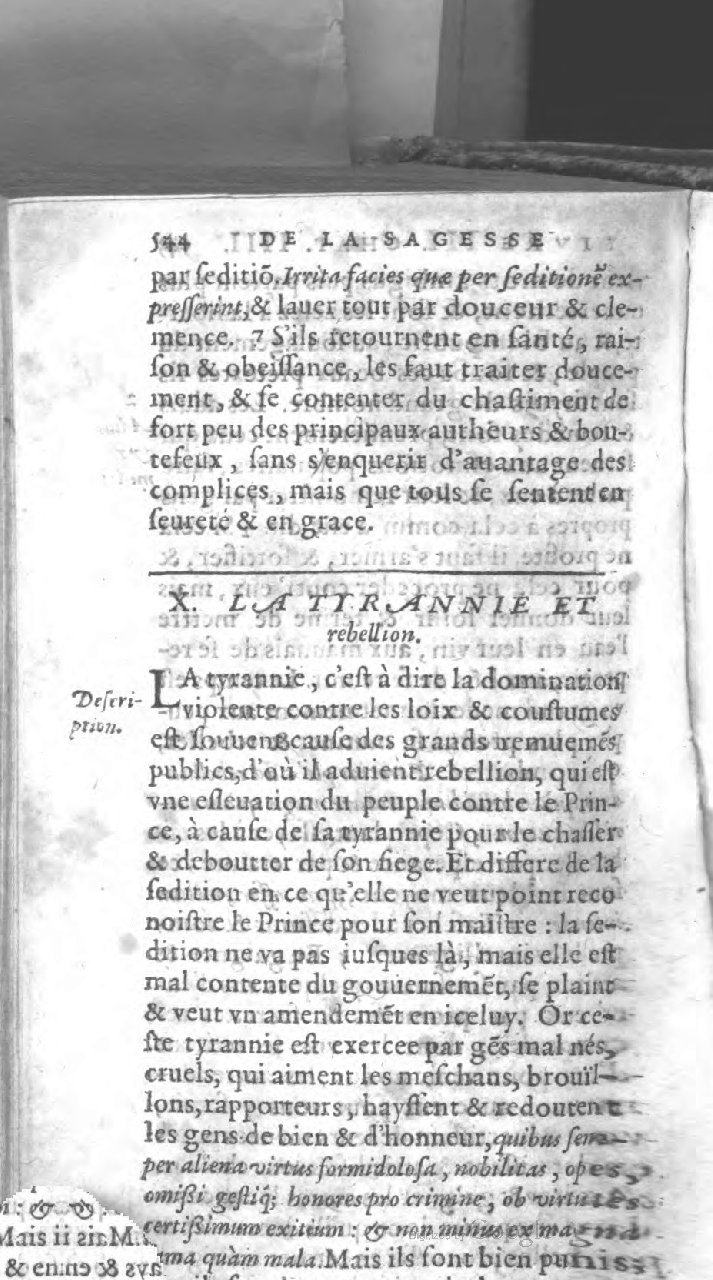 544 DE LA SAGESSE
par ſeditiõ. Irrita facies quæ per ſeditionẽ ex-
preſſerint, & lauer tout par douceur & cle-
mence. 7 S'ils retournent en ſanté, rai-
ſon & obeiſſance, les faut traiter douce-
ment, & ſe contenter du chaſtiment de
fort peu des principaux autheurs & bou-
tefeux, ſans s'enquerir d'auantage des
complices, mais que tous ſe ſentent en
ſeureté & en grace.
X. LA TYRANNIE ET
rebellion.
Deſcri-
ption.
LA tyrannie, c'eſt à dire la domination
violente contre les loix & couſtumes
eſt ſouuent cauſe des grands remuemẽs
publics, d'où il aduient rebellion, qui eſt
vne eſleuation du peuple contre le Prin-
ce, à cauſe de ſa tyrannie pour le chaſſer
& deboutter de ſon ſiege. Et differe de la
ſedition en ce qu'elle ne veut point reco
noiſtre le Prince pour ſon maiſtre : la ſe-
dition ne va pas iuſques là, mais elle eſt
mal contente du gouuernemẽt, ſe plaint
& veut vn amendemẽt en iceluy. Or ce-
ſte tyrannie eſt exercee par gẽs mal nés,
cruels, qui aiment les meſchans, brouïl-
lons, rapporteurs, hayſſent & redoutent
les gens de bien & d'honneur, quibus ſem-
per aliena virtus formidoloſa, nobilitas, opes,
omißi geſtiq; honores pro crimine, ob virtutes
certißimum exitium : & non minus ex magna
ama quàm mala. Mais ils ſont bien punis